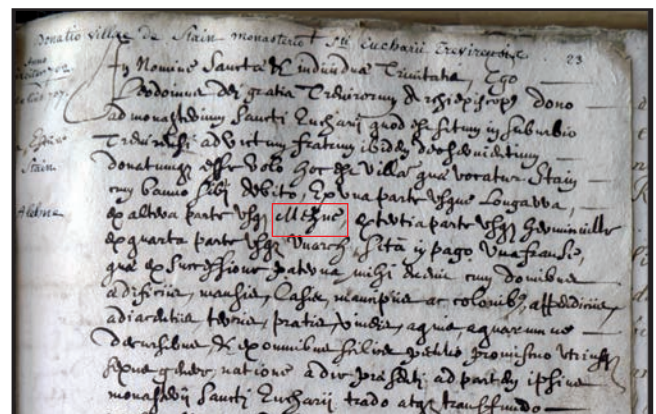 Donatio villae de Stain monasterio Sti Eucharii Trevirensis
23
Anno
707.
In Nomine Sanctae & individuae Trinitatis, Ego
Leodoinus dei gratia Trevirorum Archiepiscopus dono
ad monasterium Sancti Eucharij quod est situm in suburbio
Trevirensi ad victum fratrum ibidem deo servientium
Stain
donatumq esse volo hoc est villa quae vocatur Stain
cum banno sibi debito, Ex una parte usque Longavva,
Alebna
ex altera parte usq Mezne, ex tertia parte usq
ex quarta parte usq Vnarch, sita in pago
quae ex successione paterna mihi evenit cum domibus
aedificiis, mansis, Casis, mancipiis ac colonib, appendiciis,
adiacentiis, terris, pratis, vineis, agris, aquarumve
decursibus, & ex omnibus silvae
sexus gener, natione a die praesenti ad partem ipsius
monasterij Sancti Eucharij trado atq transfundo